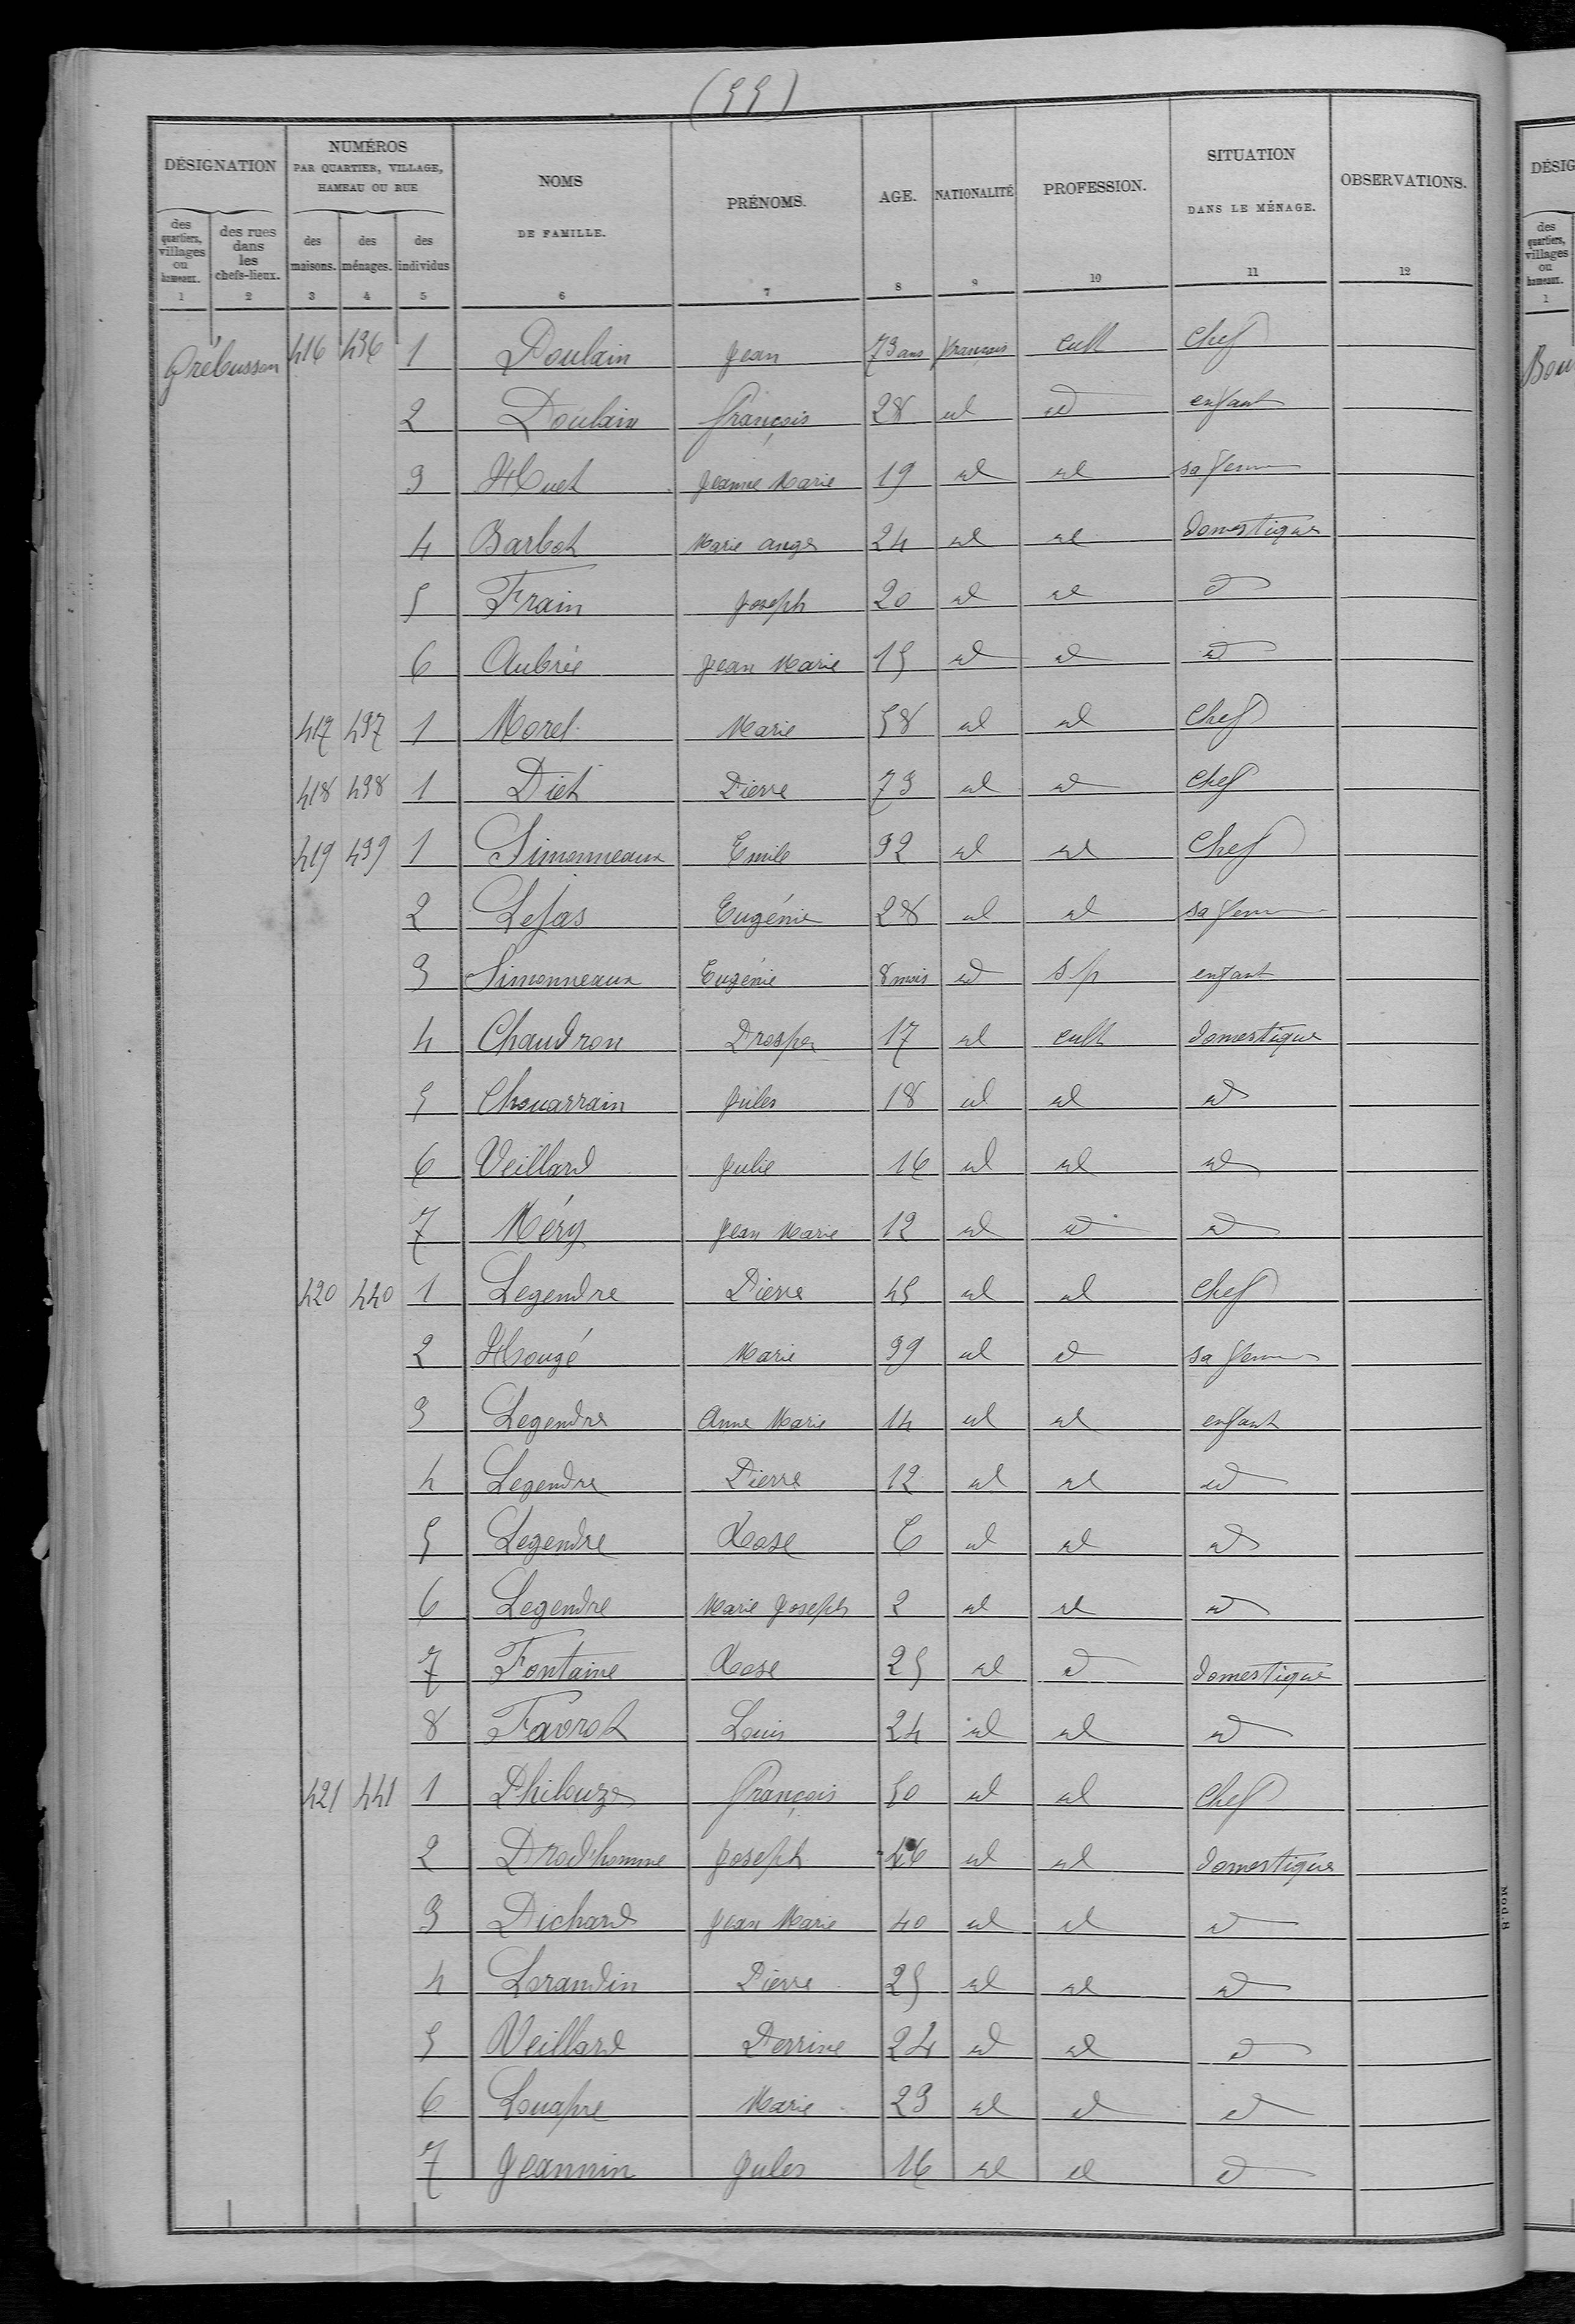 (55)
DÉSIGNATION
NUMÉROS
PAR QUARTIER, VILLAGE,
HAMEAU OU RUE
NOMS
DE FAMILLE.
PRÉNOMS.
AGE.
NATIONALITÉ
PROFESSION.
SITUATION
DANS LE MÉNAGE.
OBSERVATIONS.
des quartiers, villages ou hameaux.
des rues dans les chefs-lieux.
des maisons.
des ménages.
des individus
1 2 3 4 5 6 7 8 9 10 11 12
Grébusson 416 436 1 Poulain Jean 73 ans français cult chef
2 Poulain François 28 id id enfant
3 Huet Jeanne Marie 19 id id sa femme
4 Barbot Marie ange 24 id id domestique
5 Frain Joseph 20 id id d
6 Aubrée Jean Marie 15 id id id
417 437 1 Morel Marie 58 id id chef
418 438 1 Piet Pierre 73 id id chef
419 439 1 Simonneaux Emile 32 id id chef
2 Lejas Eugénie 28 id id sa femme
3 Simonneaux Eugénie 8 mois id s/p enfant
4 Chaudron Prosper 17 id cult domestique
5 Chouarrain Jules 18 id id id
6 Veillard Julie 16 id id id
7 Méry Jean Marie 12 id id id
420 440 1 Legendre Pierre 45 id id chef
2 Hougé Marie 39 id id sa femme
3 Legendre Anne Marie 14 id id enfant
4 Legendre Pierre 12 id id id
5 Legendre Rose 6 id id id
6 Legendre Marie Joseph 2 id id id
7 Fontaine Rose 25 id id domestique
8 Favrot Louis 24 id id id
421 441 1 Philouze François 50 id id chef
2 Prod'homme Joseph 46 id id domestique
3 Pichard Jean Marie 40 id id id
4 Lorandin Pierre 25 id id id
5 Veillard Perrine 24 id id id
6 Louapre Marie 23 id id id
7 Jeannin Jules 16 id id id
Mod. B
DÉSIG
des quartiers, villages ou hameaux.
1
Bou